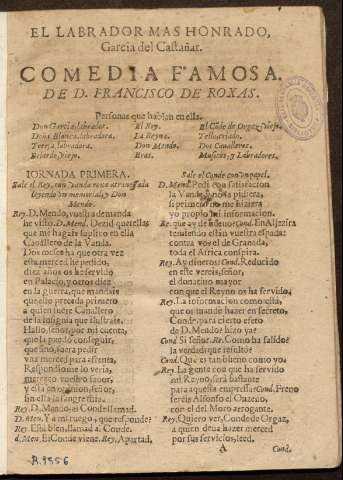 EL LABRADOR MAS HONRADO,
Garcia del Castañar.
COMEDIA FAMOSA.
DE D. FRANCISCO DE ROXAS.
Personas que hablan en ella.
Don Garcia, labrador.
Doña Blanca, labradora.
Teresa, labradora.
Belardo, viejo.
El Rey.
La Reyna.
Don Mendo.
Bras.
El Code de Orgaz, viejo.
Tello, criado.
Dos Cavalleros.
Musicos, y Labradores.
IORNADA PRIMERA.
Sale el Rey, con vanda roxa atravessada
leyendo un memorial, y Don
Mendo.
Rey. D. Mendo, vuestra demanda
he visto. D. Mend. Dezid querellas
que me hagais suplico en ella
Cavallero de la Vanda.
Dos meses ha que otra vez
esta merced he pedido,
diez años os he servido
en Palacio, y otros diez
en la guerra, que mandais
que esto preceda primero
a quien fuere Cavallero
de la insignia que ilustrais.
Hallo, señor, por mi cuenta,
que la puedo conseguir,
que sino, fuera pedir
una merced para afrenta,
Respondiome lo veria,
merezco vuestro favor,
y está en opinion, señor,
sin ella la sangre mia.
Rey. D. Mendo, al Conde llamad.
D. Men. Y a mi ruego, que responde?
Rey. Está bien, llamad al Conde.
d. Men. El Conde viene. Rey. Apartad,
Sale el Conde con un papel.
D. Mend. Pedi con satisfacion
la Vanda, y no la pidiera,
si primero no me hiziera
yo propio mi informacion.
Re. que ay de nuevo? Cond. En Algezira
temiendo están vuestra espada;
contra vos el de Granada,
toda el Africa conspira.
Rey. Ay dineros? Cond. Reducido
en este vereis, señor,
el donativo mayor
con que el Reyno os ha servido,
Rey. La informacion como está,
que os mandè hazer en secreto,
Conde, para cierto efeto
de D. Mendo? hizo ya?
Cond. Si señor. Re. Como ha salido?
la verdad: que resultò?
Cond. Que es tan bueno como yo.
Rey. La gente con que ha servido
mi Reyno, serà bastante
para aquesta empressa? Cond. Freno
sereis Alfonso el Onzeno,
con el del Moro arrogante.
Rey. Quiero ver, Conde de Orgaz,
a quien deva hazer merced
por sus servicios, leed.
A
Cond.
R.9556